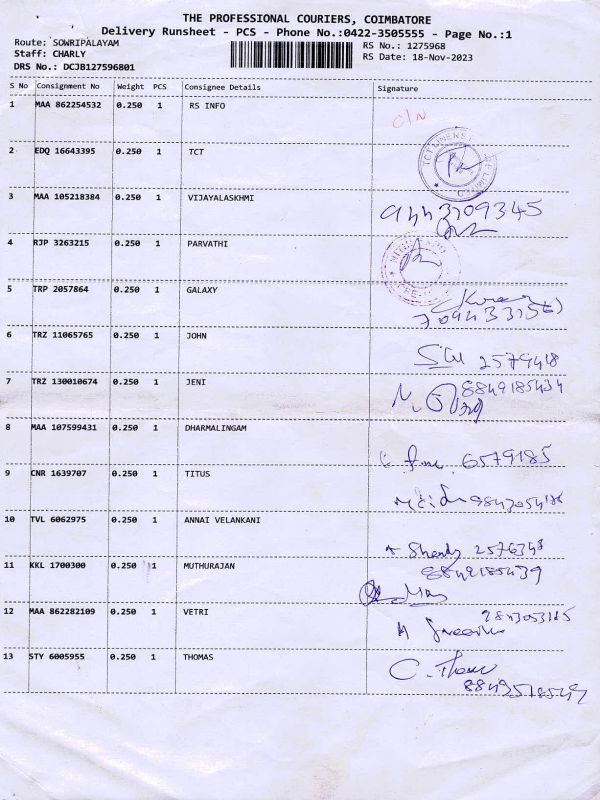 THE PROFESSIONAL COURIERS, COIMBATORE
Delivery Runsheet - PCS - Phone No.:0422-3505555 - Page No.:1
Route: SOWRIPALAYAM
RS No.: 1275968
Staff: CHARLY
RS Date: 18-Nov-2023
DRS No.: DCJB127596801
S No Consignment No Weight PCS Consignee Details Signature
1 MAA 862254532 0.250 1 RS INFO C/N
2 EDQ 16643395 0.250 1 TCT
3 MAA 105218384 0.250 1 VIJAYALASKHMI
9443709345
4 RJP 3263215 0.250 1 PARVATHI
5 TRP 2057864 0.250 1 GALAXY
6 TRZ 11065765 0.250 1 JOHN
2579418
7 TRZ 130010674 0.250 1 JENI 8849185434
8 MAA 107599431 0.250 1 DHARMALINGAM
6579185
9 CNR 1639707 0.250 1 TITUS
10 TVL 6062975 0.250 1 ANNAI VELANKANI
2576348
11 KKL 1700300 0.250 1 MUTHURAJAN 8849185439
12 MAA 862282109 0.250 1 VETRI
13 STY 6005955 0.250 1 THOMAS